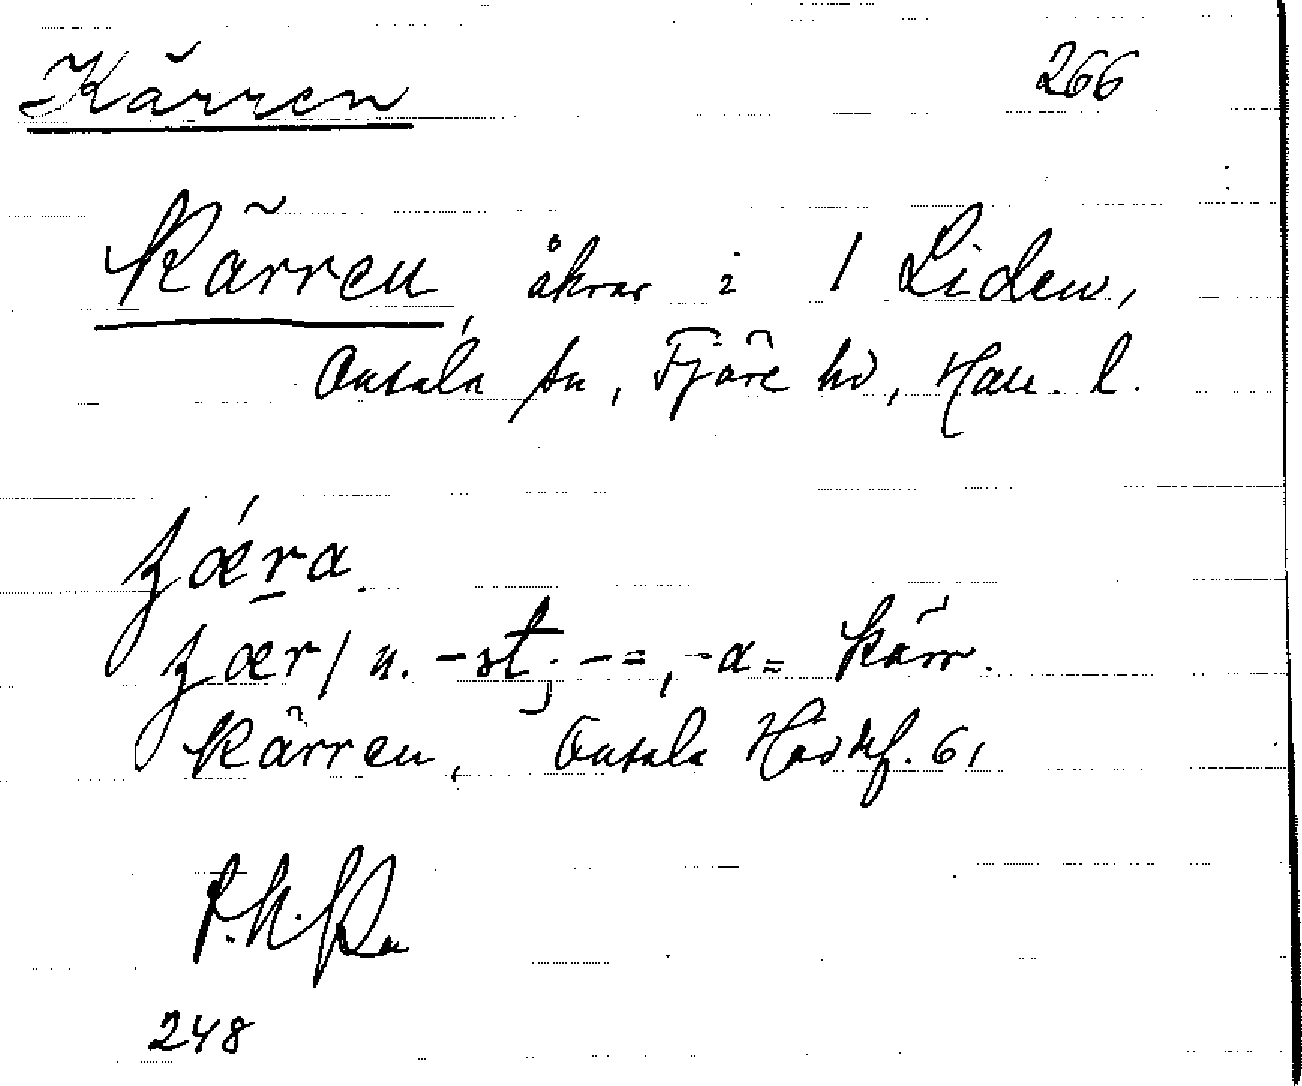 Kärren 266
Kärren, åkrar i 1 Liden,
Onsala sn, Fjäre hd, Hall. l.
ʒǽra.
ʒær/ n. -st; - =, -a = kärr.
Kärren, Onsala 61
248